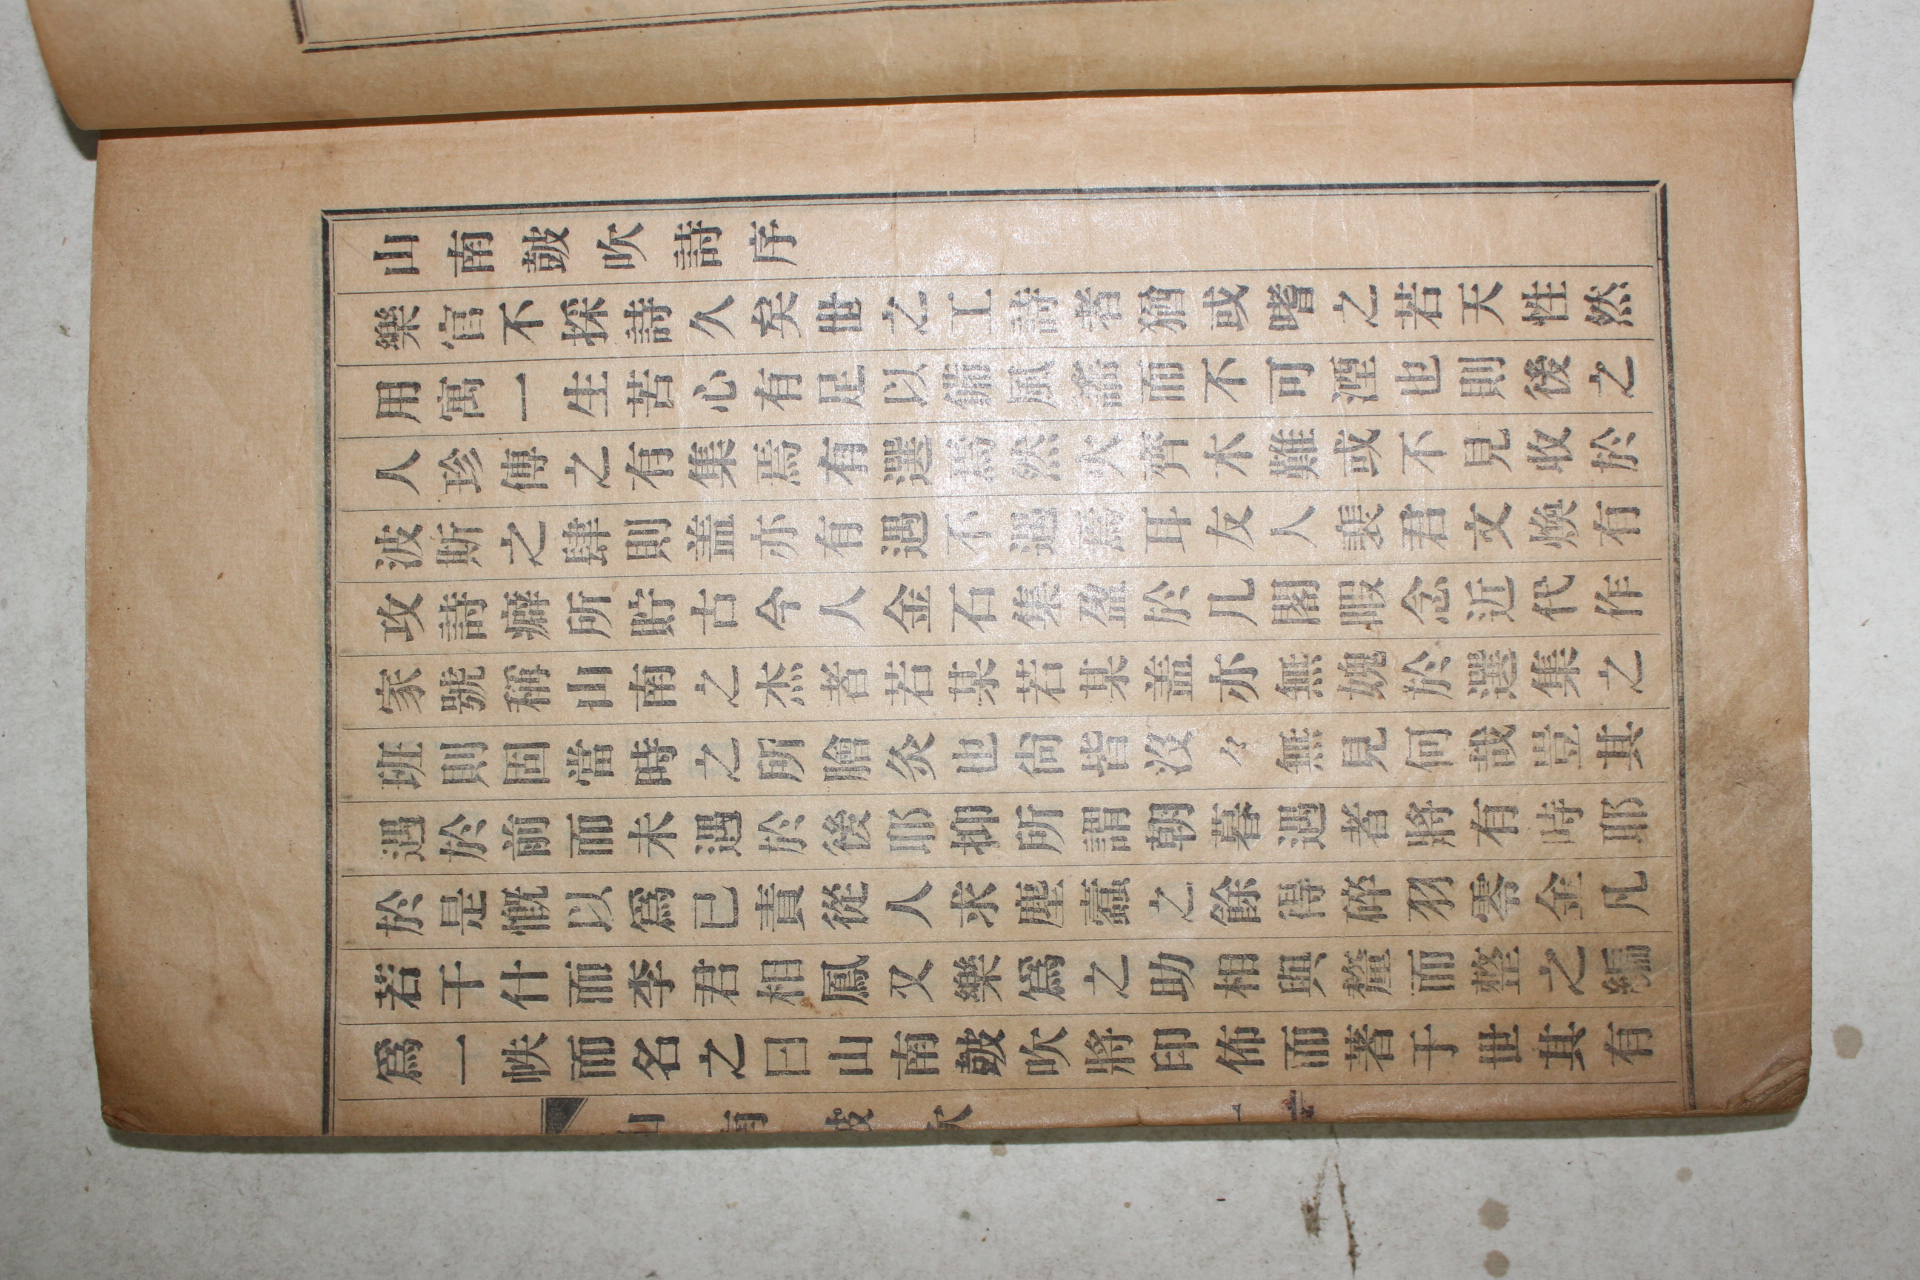 山南皷吹詩序
樂官不採詩久矣世之工詩者猶或嗜之若天性然
用寓一生苦心有足以備風謠而不可湮也則後之
人珍傳之有集焉有選焉然火齊木難或不見收於
波斯之肆則盖亦有遇不遇焉耳友人裵君文煥有
攻詩癖所貯古今人金石集盈於几閣暇念近代作
家號稱山南之杰者若某若某盖亦無媿於選集之
班則固當時之所膾炙也尙皆沒々無見何哉豈其
遇於前而未遇於後耶抑所謂朝暮遇者將有時耶
於是慨以爲已責從人求塵蠹之餘得碎羽零金凡
若干什而李君相鳳又樂爲之助相與釐而整之編
爲一帙而名之曰山南皷吹將印佈而著于世其有